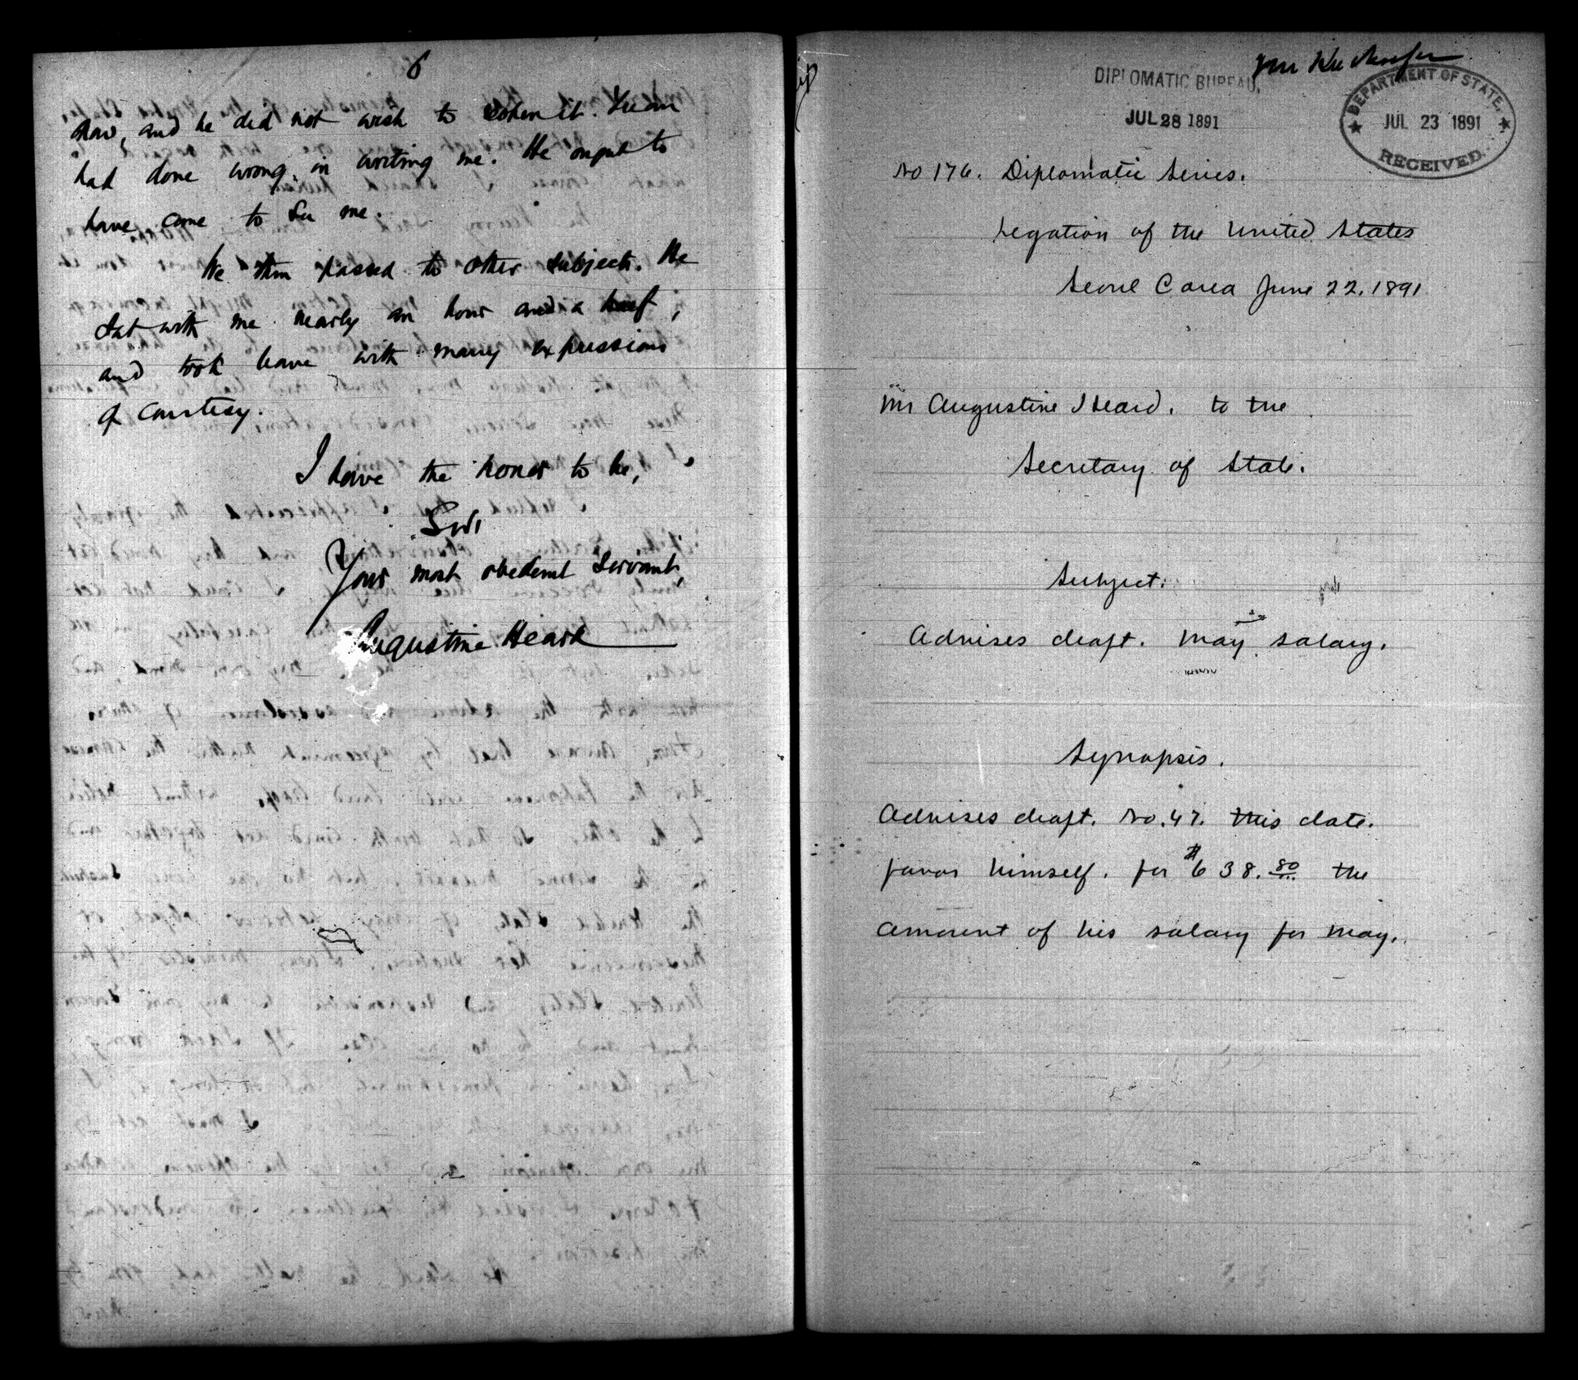 6
now, and he did not wish to reopen it. Yuan
had done wrong in writing me. He ought to
have come to see me.
We then passed to other subjects. He
sat with me nearly an hour and a half,
and took leave with many expressions
of courtesy.
I have the honor to be,
Sir,
Your most obedient servant,
Augustine Heard
DIPLOMATIC BUREAU,
JUL 28 1891
DEPARTMENT OF STATE,
JUL 23 1891
RECEIVED.
No 176. Diplomatic Series.
Legation of the United States
Seoul Corea June 22, 1891
Mr Augustine Heard. to the
Secretary of State.
Subject:
Advises draft. May salary.
Synopsis.
Advises draft. No. 47. this date.
favor himself. for $638.80 the
amount of his salary for May.